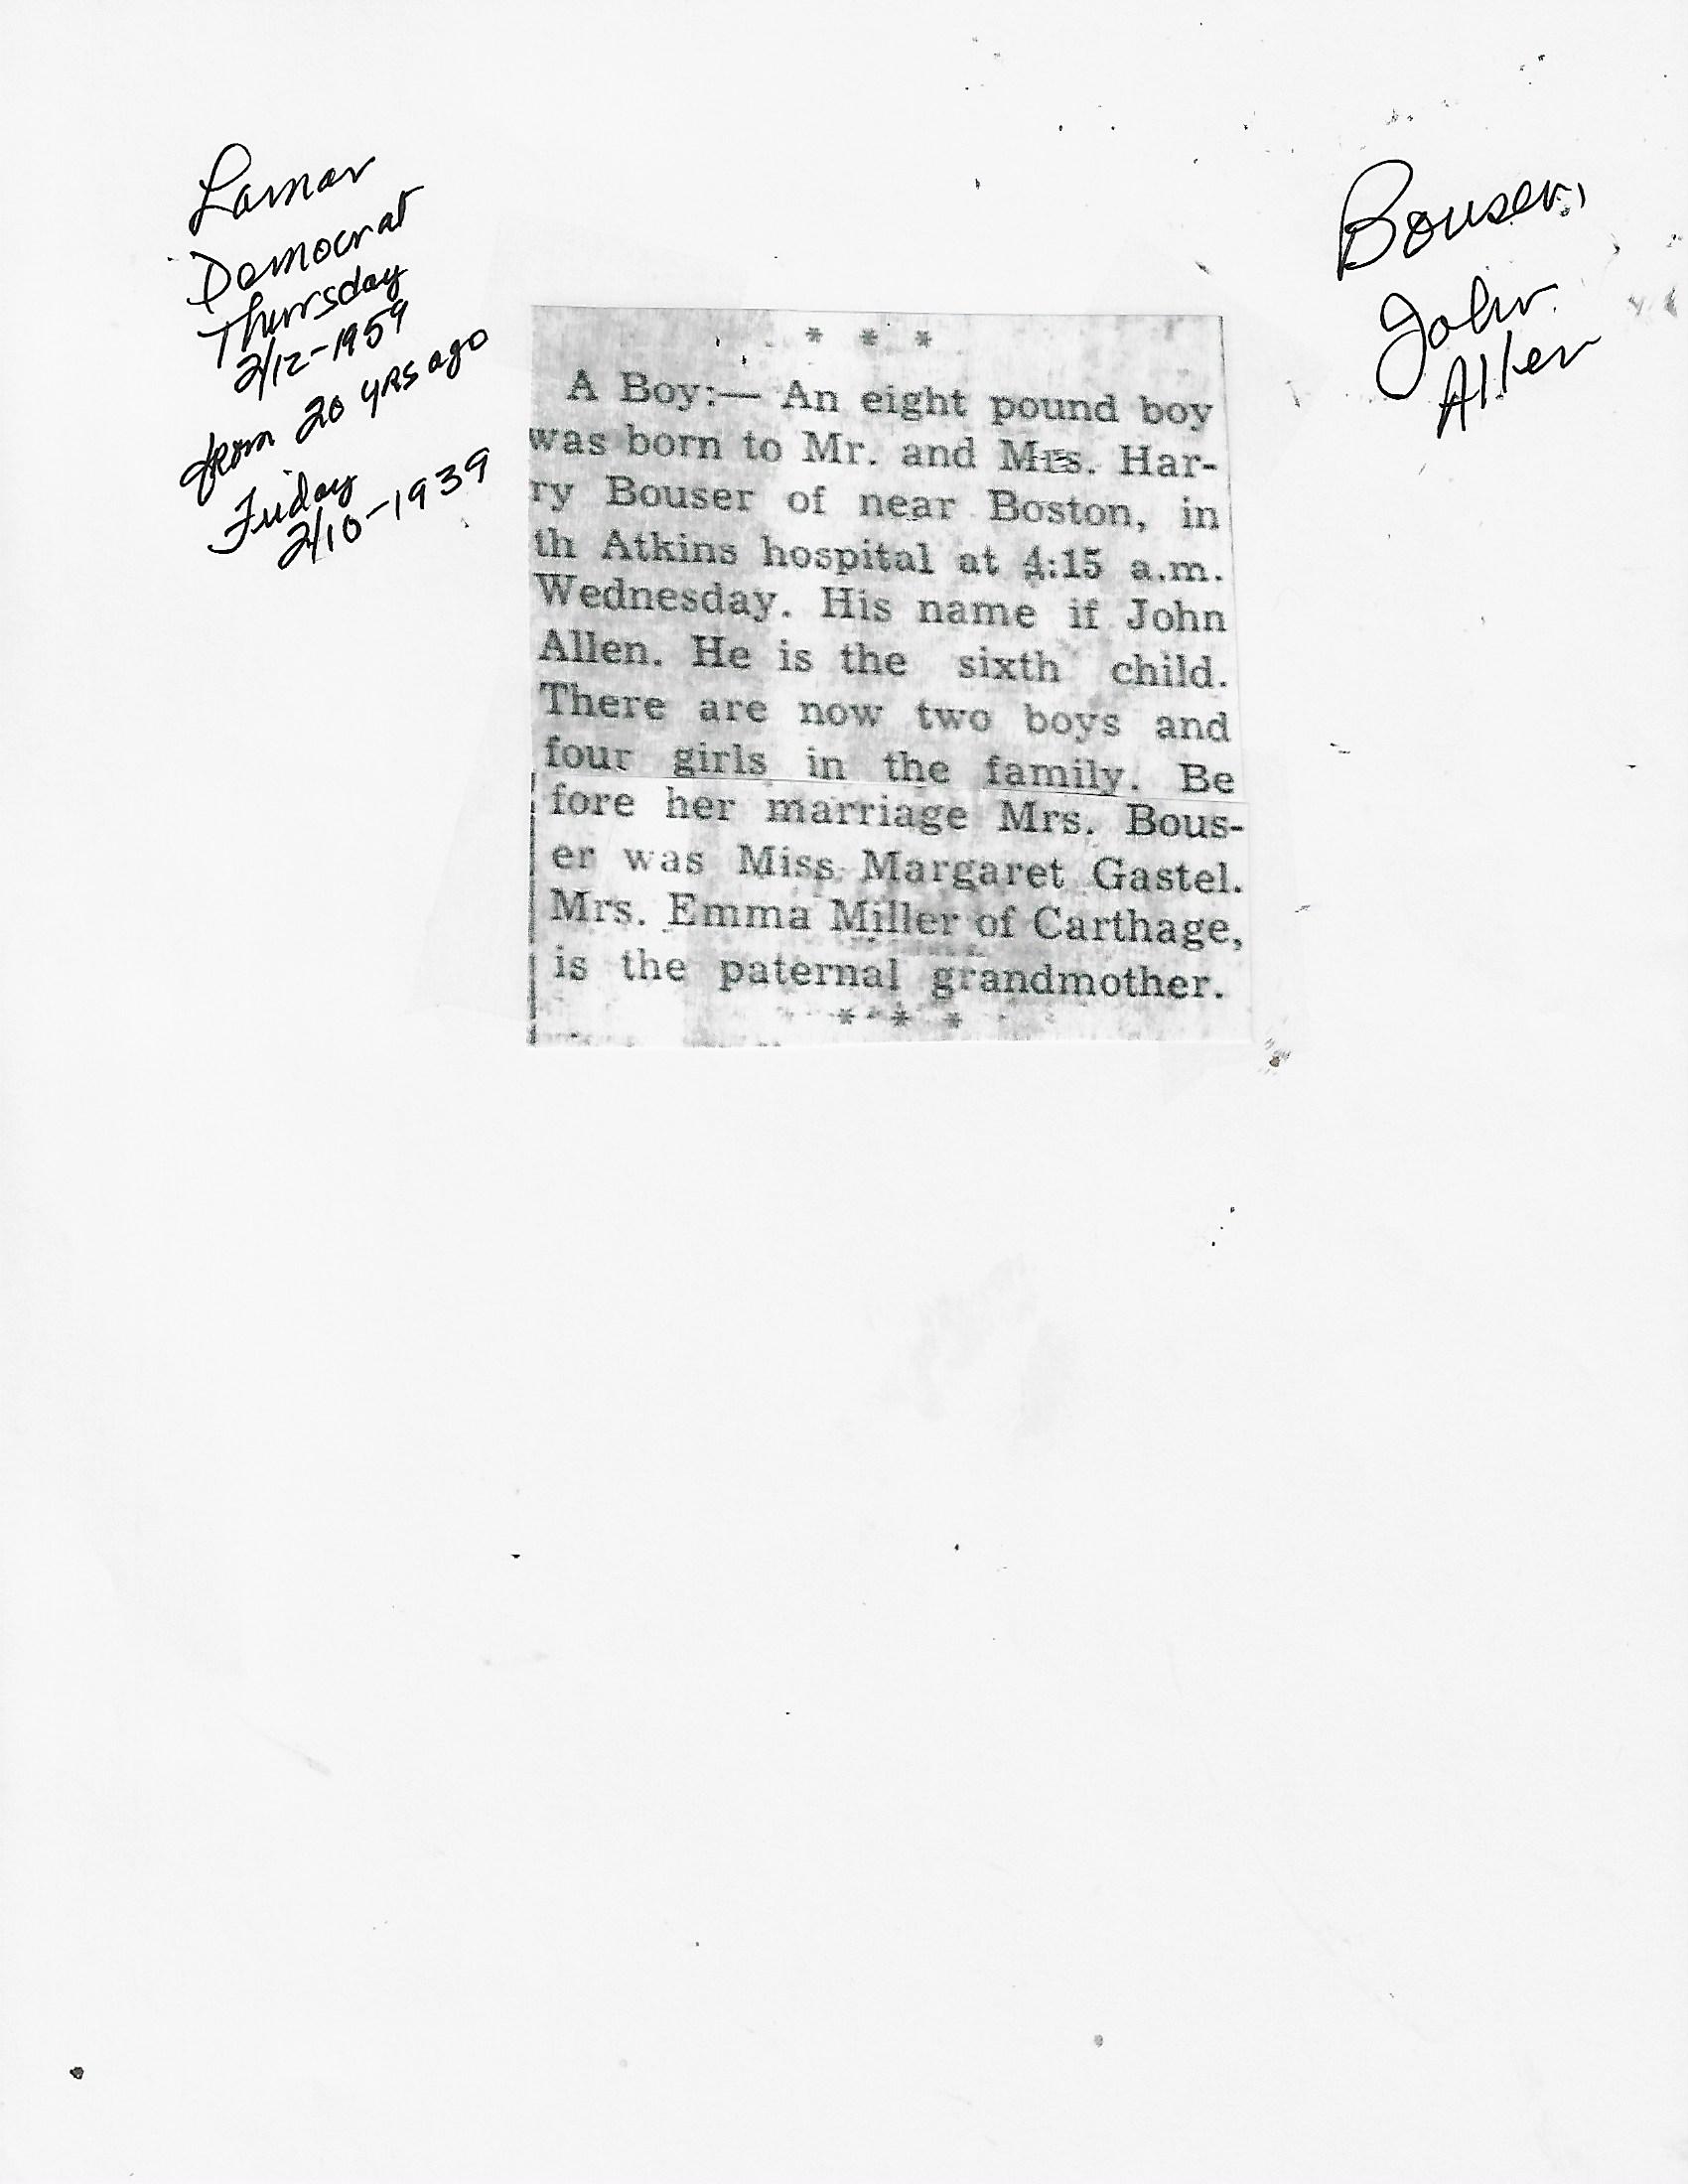 Lamar
Democrat
Thursday
2/12-1959
from 20 yrs ago
Friday
2/10-1939
Bouser,
John
Allen
* * *
A Boy:— An eight pound boy
was born to Mr. and Mrs. Har-
ry Bouser of near Boston, in
th Atkins hospital at 4:15 a.m.
Wednesday. His name if John
Allen. He is the sixth child.
There are now two boys and
four girls in the family. Be
fore her marriage Mrs. Bous-
er was Miss Margaret Gastel.
Mrs. Emma Miller of Carthage,
is the paternal grandmother.
* * *